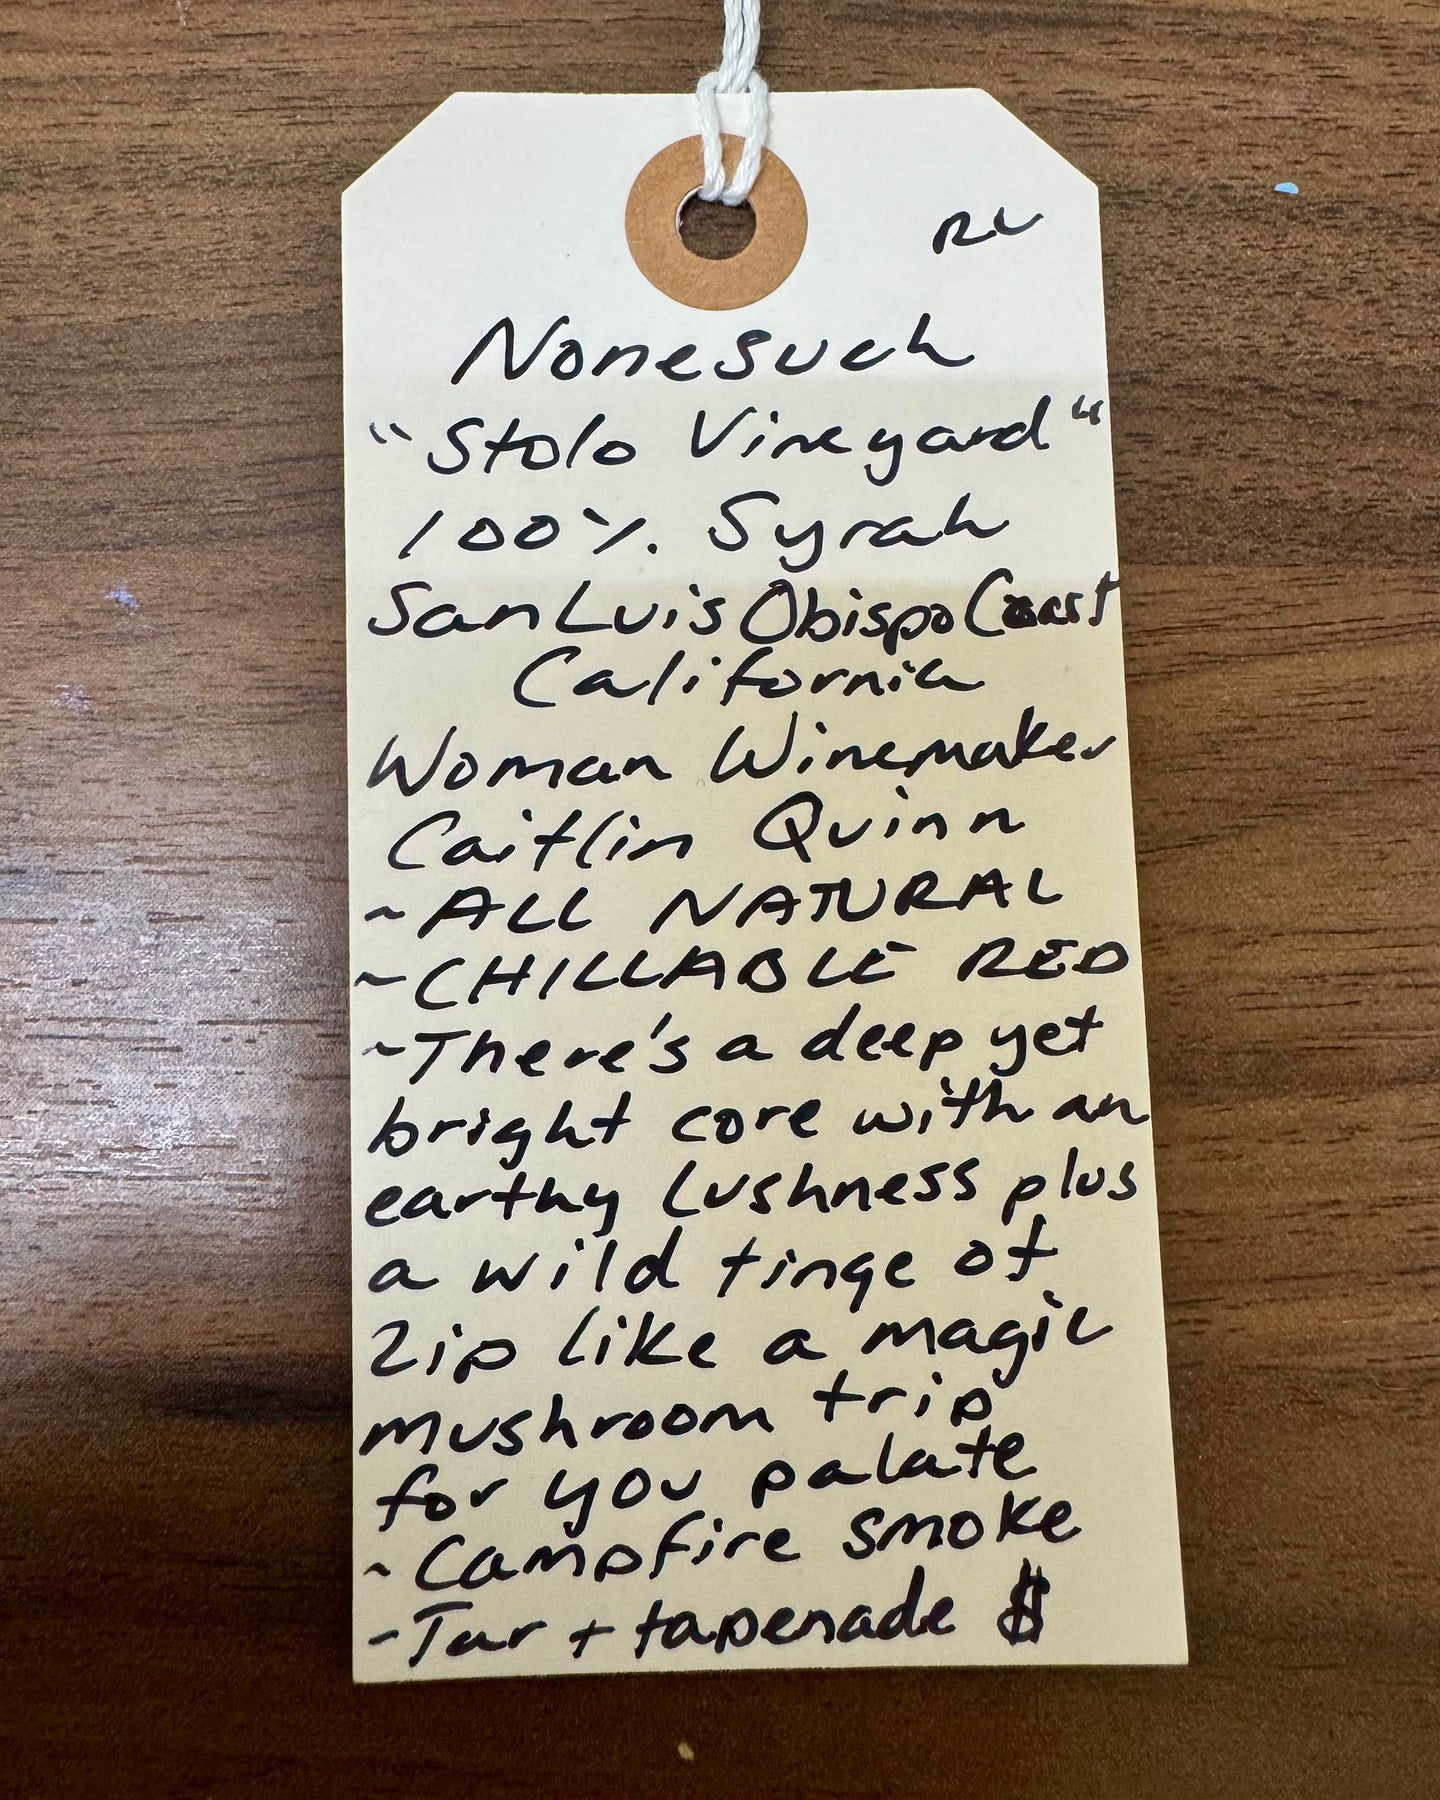 RL
Nonesuch
"Stolo Vineyard"
100% Syrah
San Luis Obispo Coast
California
Woman Winemaker
Caitlin Quinn
~ALL NATURAL
~CHILLABLE RED
~There's a deep yet
bright core with an
earthy lushness plus
a wild tinge of
zip like a magic
mushroom trip
for you palate
~Campfire smoke
~Tar + tapenade $